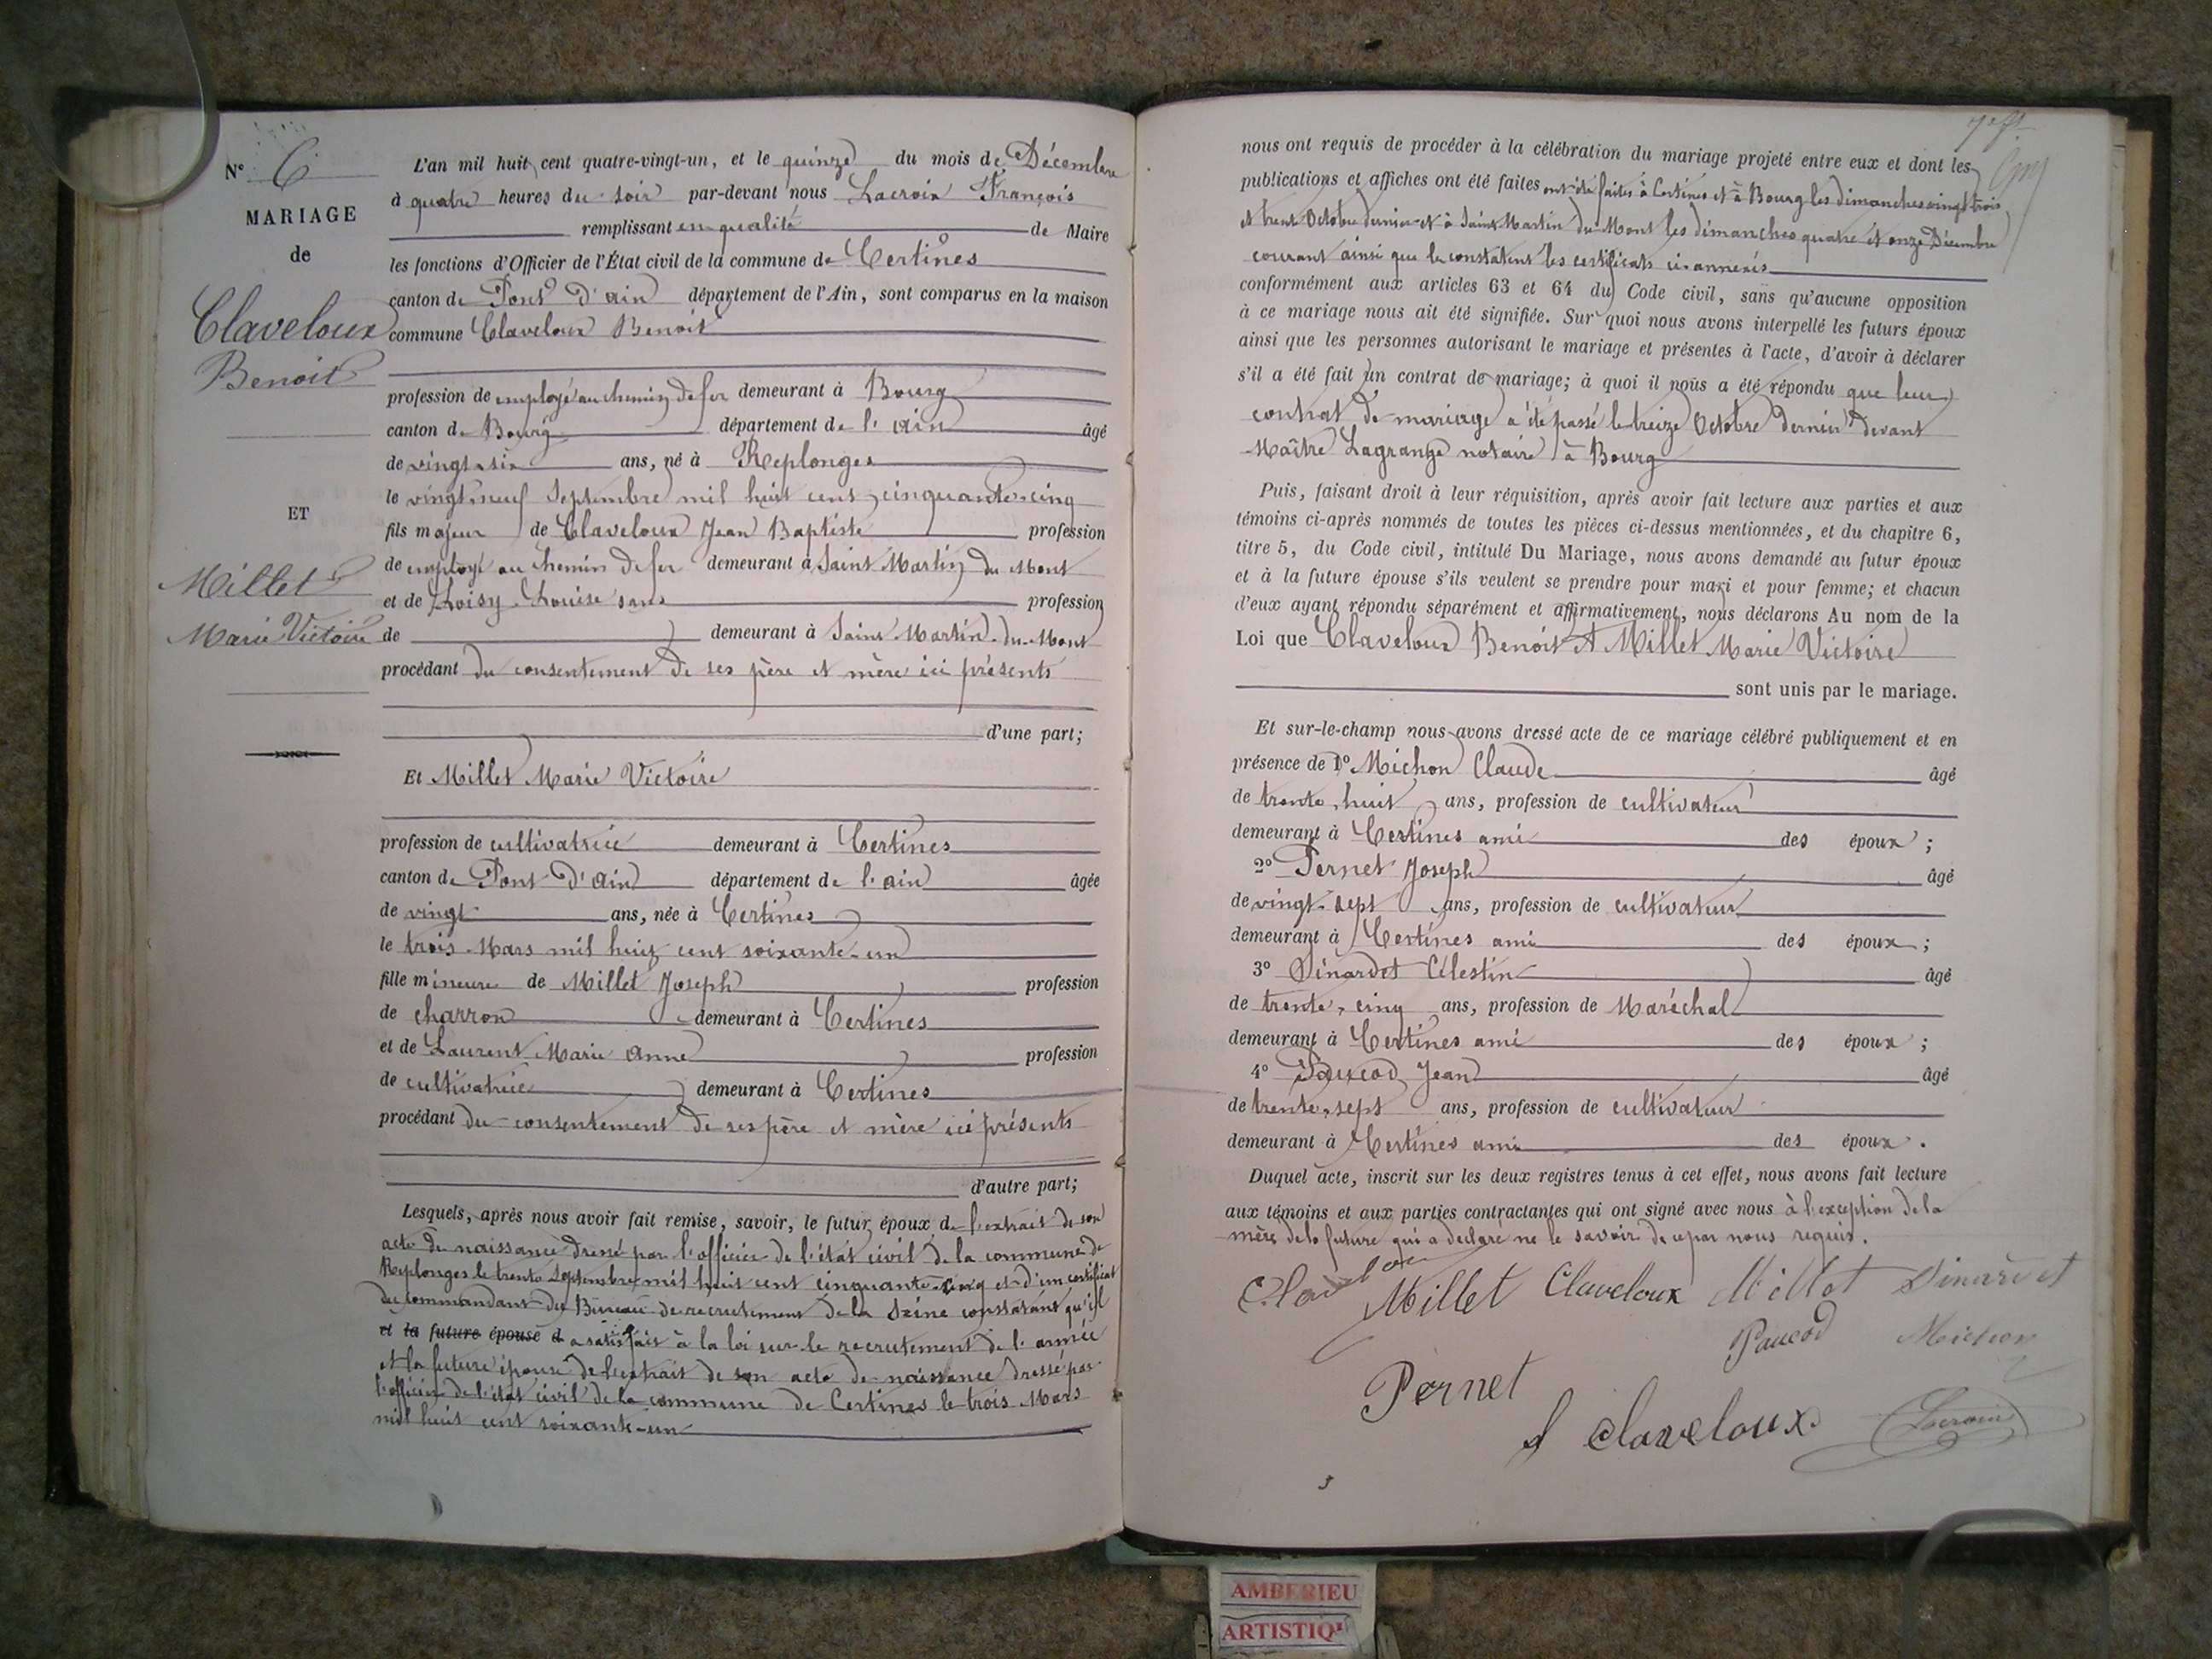 N° 6
MARIAGE
de
Claveloux
Benoit
ET
Millet
Marie Victoire
L'an mil huit cent quatre-vingt-un, et le quinze du mois de Décembre
à quatre heures du soir par-devant nous Lacroix François
remplissant en qualité de Maire
les fonctions d'Officier de l'État civil de la commune de Certines
canton de Pont d'ain département de l'Ain, sont comparus en la maison
commune Claveloux Benoit
profession de employé au chemin de fer demeurant à Bourg
canton de Bourg département de l'ain âgé
de vingt-six ans, né à Replonges
le vingt-neuf Septembre mil huit cent cinquante-cinq
fils majeur de Claveloux Jean Baptiste profession
de employé au chemin de fer demeurant à Saint Martin du Mont
et de Loisy Louise sans profession
de demeurant à Saint Martin-du-Mont
procédant du consentement de ses père et mère ici présents
d'une part;
Et Millet Marie Victoire
profession de cultivatrice demeurant à Certines
canton de Pont d'Ain département de l'ain âgée
de vingt ans, née à Certines
le trois Mars mil huit cent soixante-un
fille mineure de Millet Joseph profession
de charron demeurant à Certines
et de Laurent Marie Anne profession
de cultivatrice demeurant à Certines
procédant du consentement de ses père et mère ici présents
d'autre part;
Lesquels, après nous avoir fait remise, savoir, le futur époux de l'extrait de son
acte de naissance dressé par l'officier de l'état civil de la commune de
Replonges le trente Septembre mil huit cent cinquante-cinq et d'un certificat
du commandant du Bureau de recrutement de la Seine constatant qu'il
et la future épouse d a satisfait à la loi sur le recrutement de l'armée
et la future épouse de l'extrait de son acte de naissance dressé par
l'officier de l'état civil de la commune de Certines le trois Mars
mil huit cent soixante-un
nous ont requis de procéder à la célébration du mariage projeté entre eux et dont les
publications et affiches ont été faites ont été faites à Certines et à Bourg les dimanches vingt trois
et trente Octobre dernier et à Saint Martin du Mont les dimanches quatre et onze Décembre
courant ainsi que le constatent les certificats ci-annexés
conformément aux articles 63 et 64 du Code civil, sans qu'aucune opposition
à ce mariage nous ait été signifiée. Sur quoi nous avons interpellé les futurs époux
ainsi que les personnes autorisant le mariage et présentes à l'acte, d'avoir à déclarer
s'il a été fait un contrat de mariage; à quoi il nous a été répondu que leur
contrat de mariage a été passé le treize Octobre dernier devant
Maître Lagrange notaire à Bourg
Puis, faisant droit à leur réquisition, après avoir fait lecture aux parties et aux
témoins ci-après nommés de toutes les pièces ci-dessus mentionnées, et du chapitre 6,
titre 5, du Code civil, intitulé Du Mariage, nous avons demandé au futur époux
et à la future épouse s'ils veulent se prendre pour mari et pour femme; et chacun
d'eux ayant répondu séparément et affirmativement, nous déclarons Au nom de la
Loi que Claveloux Benoit et Millet Marie Victoire
sont unis par le mariage.
Et sur-le-champ nous avons dressé acte de ce mariage célébré publiquement et en
présence de 1° Michon Claude âgé
de trente-huit ans, profession de cultivateur
demeurant à Certines ami des époux;
2° Pernet Joseph âgé
de vingt-sept ans, profession de cultivateur
demeurant à Certines ami des époux;
3° Dinardet Célestin âgé
de trente-cinq ans, profession de Maréchal
demeurant à Certines ami des époux;
4° Paucod Jean âgé
de trente-sept ans, profession de cultivateur
demeurant à Certines ami des époux.
Duquel acte, inscrit sur les deux registres tenus à cet effet, nous avons fait lecture
aux témoins et aux parties contractantes qui ont signé avec nous à l'exception de la
mère de la future qui a déclaré ne le savoir de ce par nous requis.
Millet Claveloux Millet Dinardet
Paucod Michon
Pernet
Claveloux Lacroix
AMBERIEU
ARTISTIQ